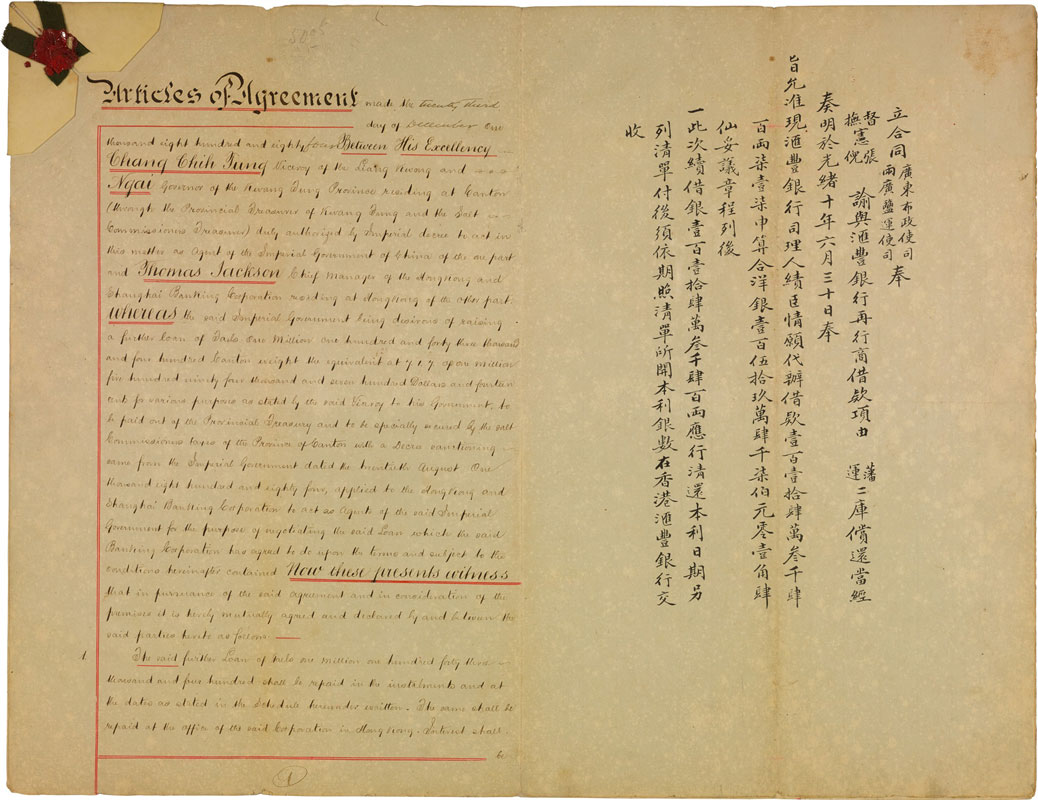 Articles of Agreement made the twenty third
day of December One
thousand eight hundred and eighty four Between His Excellency
Chang Chih Tung Viceroy of the Liang Kwang and
Ngai Governor of the Kwang Tung Province residing at Canton
(through the Provincial Treasurer of Kwang Tung and the Salt
Commissioners Treasurer) duly authorized by Imperial decree to act in
this matter as Agent of the Imperial Government of China of the one part
and Thomas Jackson Chief Manager of the Hongkong and
Shanghai Banking Corporation residing at Hongkong of the other part
Whereas the said Imperial Government being desirous of raising
a further loan of Taels One Million one hundred and forty three thousand
and four hundred Canton weight the equivalent at 7.1.7 of one million
five hundred ninety four thousand and seven hundred Dollars and fourteen
cents for various purposes as stated by the said Viceroy to his Government, to
be paid out of the Provincial Treasury and to be specially secured by the salt
Commissioners taxes of the Province of Canton with a Decree sanctioning
same from the Imperial Government dated the twentieth August One
thousand eight hundred and eighty four, applied to the Hongkong and
Shanghai Banking Corporation to act as Agents of the said Imperial
Government for the purpose of negotiating the said Loan which the said
Banking Corporation has agreed to do upon the terms and subject to the
conditions hereinafter contained Now these presents witness
that in pursuance of the said agreement and in consideration of the
premises it is hereby mutually agreed and declared by and between the
said parties hereto as follows:
1. The said further Loan of Taels one million one hundred forty three
thousand and four hundred shall be repaid in the instalments and at
the dates as stated in the Schedule hereunder written. The same shall be
repaid at the office of the said Corporation in Hongkong. Interest shall
be
1
立合同廣東布政使司兩廣鹽運使司奉
督憲張撫憲倪諭與滙豐銀行再行商借欵項由藩運二庫償還當經
奏明於光緒十年六月三十日奉
旨允准現滙豐銀行司理人績臣情願代辦借欵壹百壹拾肆萬叁千肆
百兩柒壹柒申算合洋銀壹百伍拾玖萬肆千柒伯元零壹角肆
仙妥議章程列後
一此次續借銀壹百壹拾肆萬叁千肆百兩應行清還本利日期另
列清單付後須依期照清單所開本利銀數在香港滙豐銀行交
收